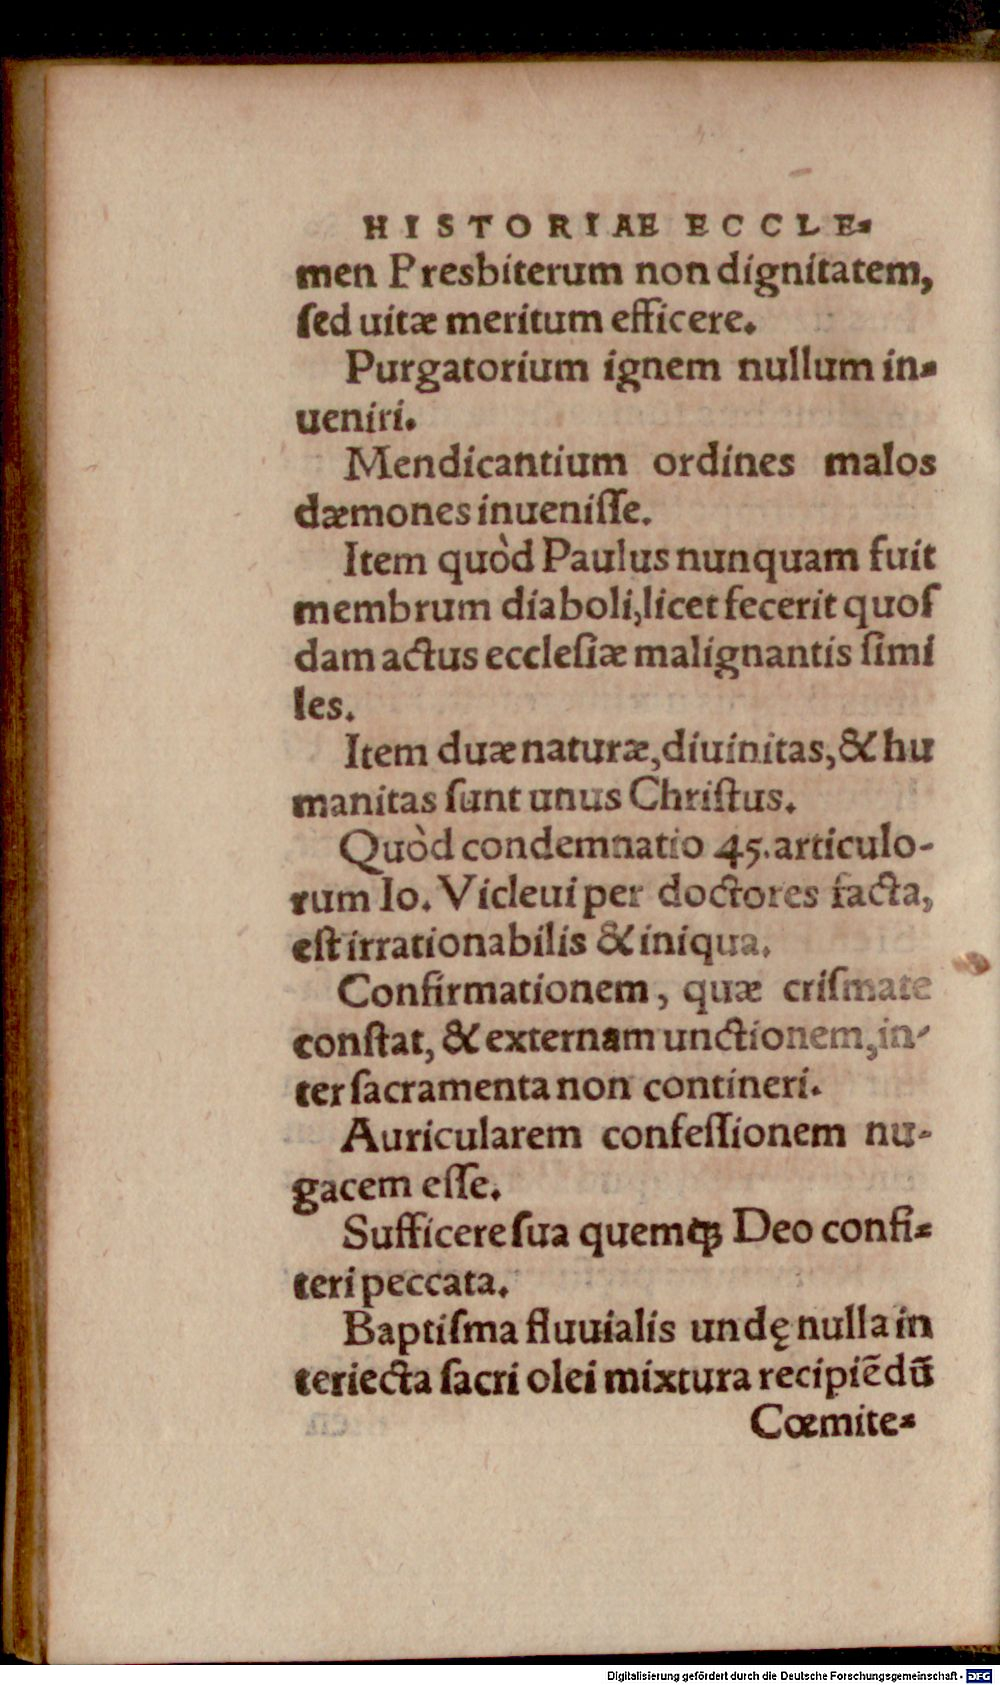 HISTORIAE ECCLE-
men Presbiterum non dignitatem,
ſed uitæ meritum efficere.
Purgatorium ignem nullum in-
ueniri.
Mendicantium ordines malos
dæmones inueniſſe.
Item quòd Paulus nunquam fuit
membrum diaboli, licet fecerit quoſ
dam actus eccleſiæ malignantis ſimi
les.
Item duæ naturæ, diuinitas, & hu
manitas ſunt unus Chriſtus.
Quòd condemnatio 45. articulo-
rum Io. Vicleui per doctores facta,
eſt irrationabilis & iniqua.
Confirmationem, quæ criſmate
conſtat, & externam unctionem, in-
ter ſacramenta non contineri.
Auricularem confeſſionem nu-
gacem eſſe.
Sufficere ſua quemqꝫ Deo confi-
teri peccata.
Baptiſma fluuialis undę nulla in
teriecta ſacri olei mixtura recipiẽdũ
Cœmite-
Digitalisierung gefördert durch die Deutsche Forschungsgemeinschaft - DFG